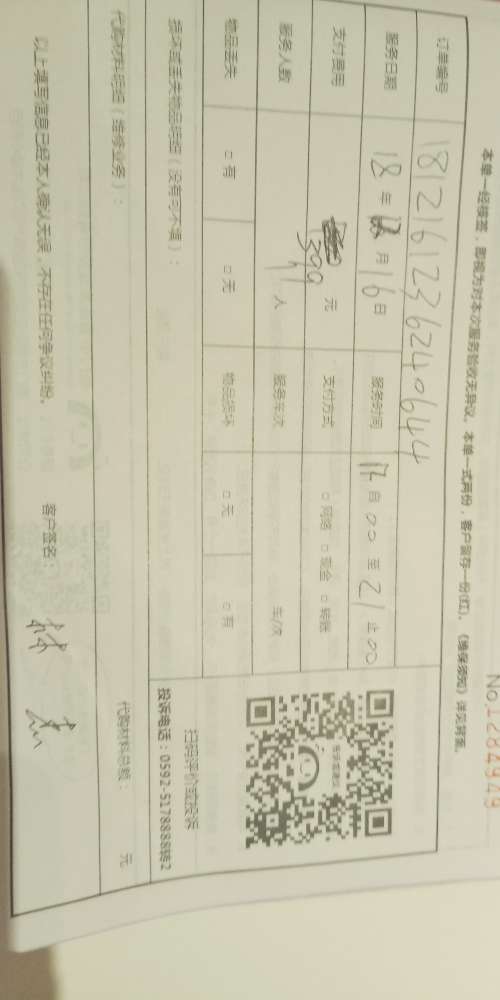 No.1284949
本单一经接签，即视为对本次服务验收无异议。本单一式两份，客户留存一份(红)。《维保须知》详见背面。
订单编号 1812161236240644
服务日期 18 年 月 16 日 服务时间 自 00 至 21 止 00
支付费用 390 元 支付方式 □ 网络 □ 现金 □ 转账
服务人数 1 人 服务车次 车/次
物品丢失 □ 有 □ 无 物品损坏 □ 无 □ 有
扫码评价或投诉
投诉电话：0592-5178888转2
损坏或丢失物品明细（没有可不填）：
代购材料明细（维修业务）： 代购材料总额： 元
以上填写信息已经本人确认无误，不存在任何争议纠纷。 客户签名： 林